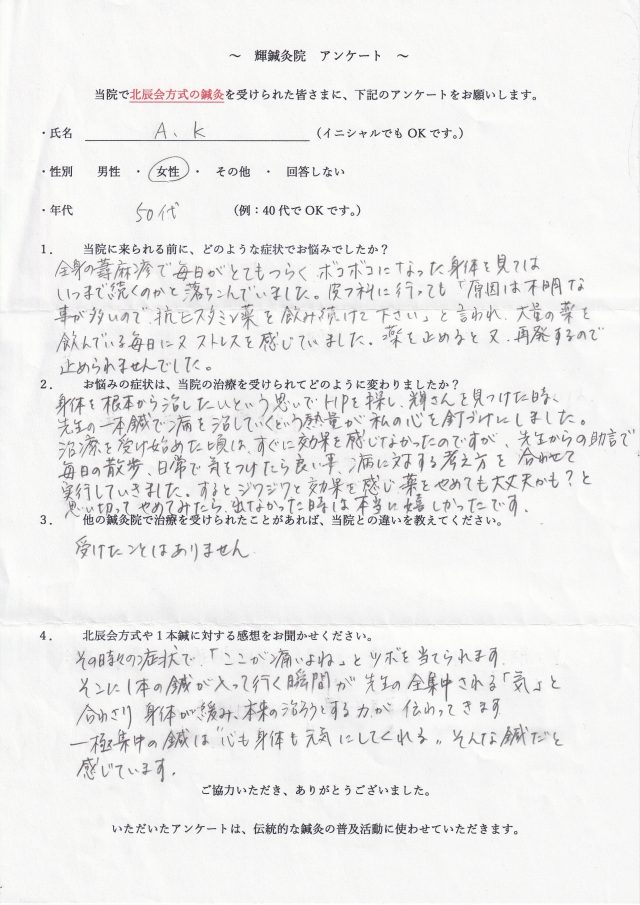 ～　輝鍼灸院　アンケート　～
当院で北辰会方式の鍼灸を受けられた皆さまに、下記のアンケートをお願いします。
・氏名　A.K　（イニシャルでも OK です。）
・性別　男性　・　女性　・　その他　・　回答しない
・年代　50代　（例：40 代で OK です。）
1．　当院に来られる前に、どのような症状でお悩みでしたか？
全身の蕁麻疹で毎日がとてもつらく ボコボコになった身体を見ては
いつまで続くのかと落ちこんでいました。皮フ科に行っても「原因は不明な
事が多いので、抗ヒスタミン薬を飲み続けて下さい」と言われ、大量の薬を
飲んでいる毎日にヌ ストレスを感じていました。薬を止めると又、再発するので
止められませんでした。
2．　お悩みの症状は、当院の治療を受けられてどのように変わりましたか？
身体を根本から治したいという思いでHPを探し、輝さんを見つけた時、
先生の一本鍼で病を治していくという熱量が私の心を釘づけにしました。
治療を受け始めた頃は、すぐに効果を感じなかったのですが、先生からの助言で
毎日の散歩、日常で気をつけたら良い事、病に対する考え方を合わせて
実行していきました。するとジワジワと効果を感じ薬をやめても大丈夫かも？と
思い切ってやめてみたら、出なかった時は本当に嬉しかったです。
3．　他の鍼灸院で治療を受けられたことがあれば、当院との違いを教えてください。
受けたことはありません。
4．　北辰会方式や１本鍼に対する感想をお聞かせください。
その時々の症状で、「ここが痛いよね」とツボを当てられます。
そこに1本の鍼が入って行く瞬間が先生の全集中される「気」と
合わさり 身体が緩み、本来の治ろうとする力が 伝わってきます
一極集中の鍼は“心も身体も元気にしてくれる”そんな鍼だと
感じています。
ご協力いただき、ありがとうございました。
いただいたアンケートは、伝統的な鍼灸の普及活動に使わせていただきます。